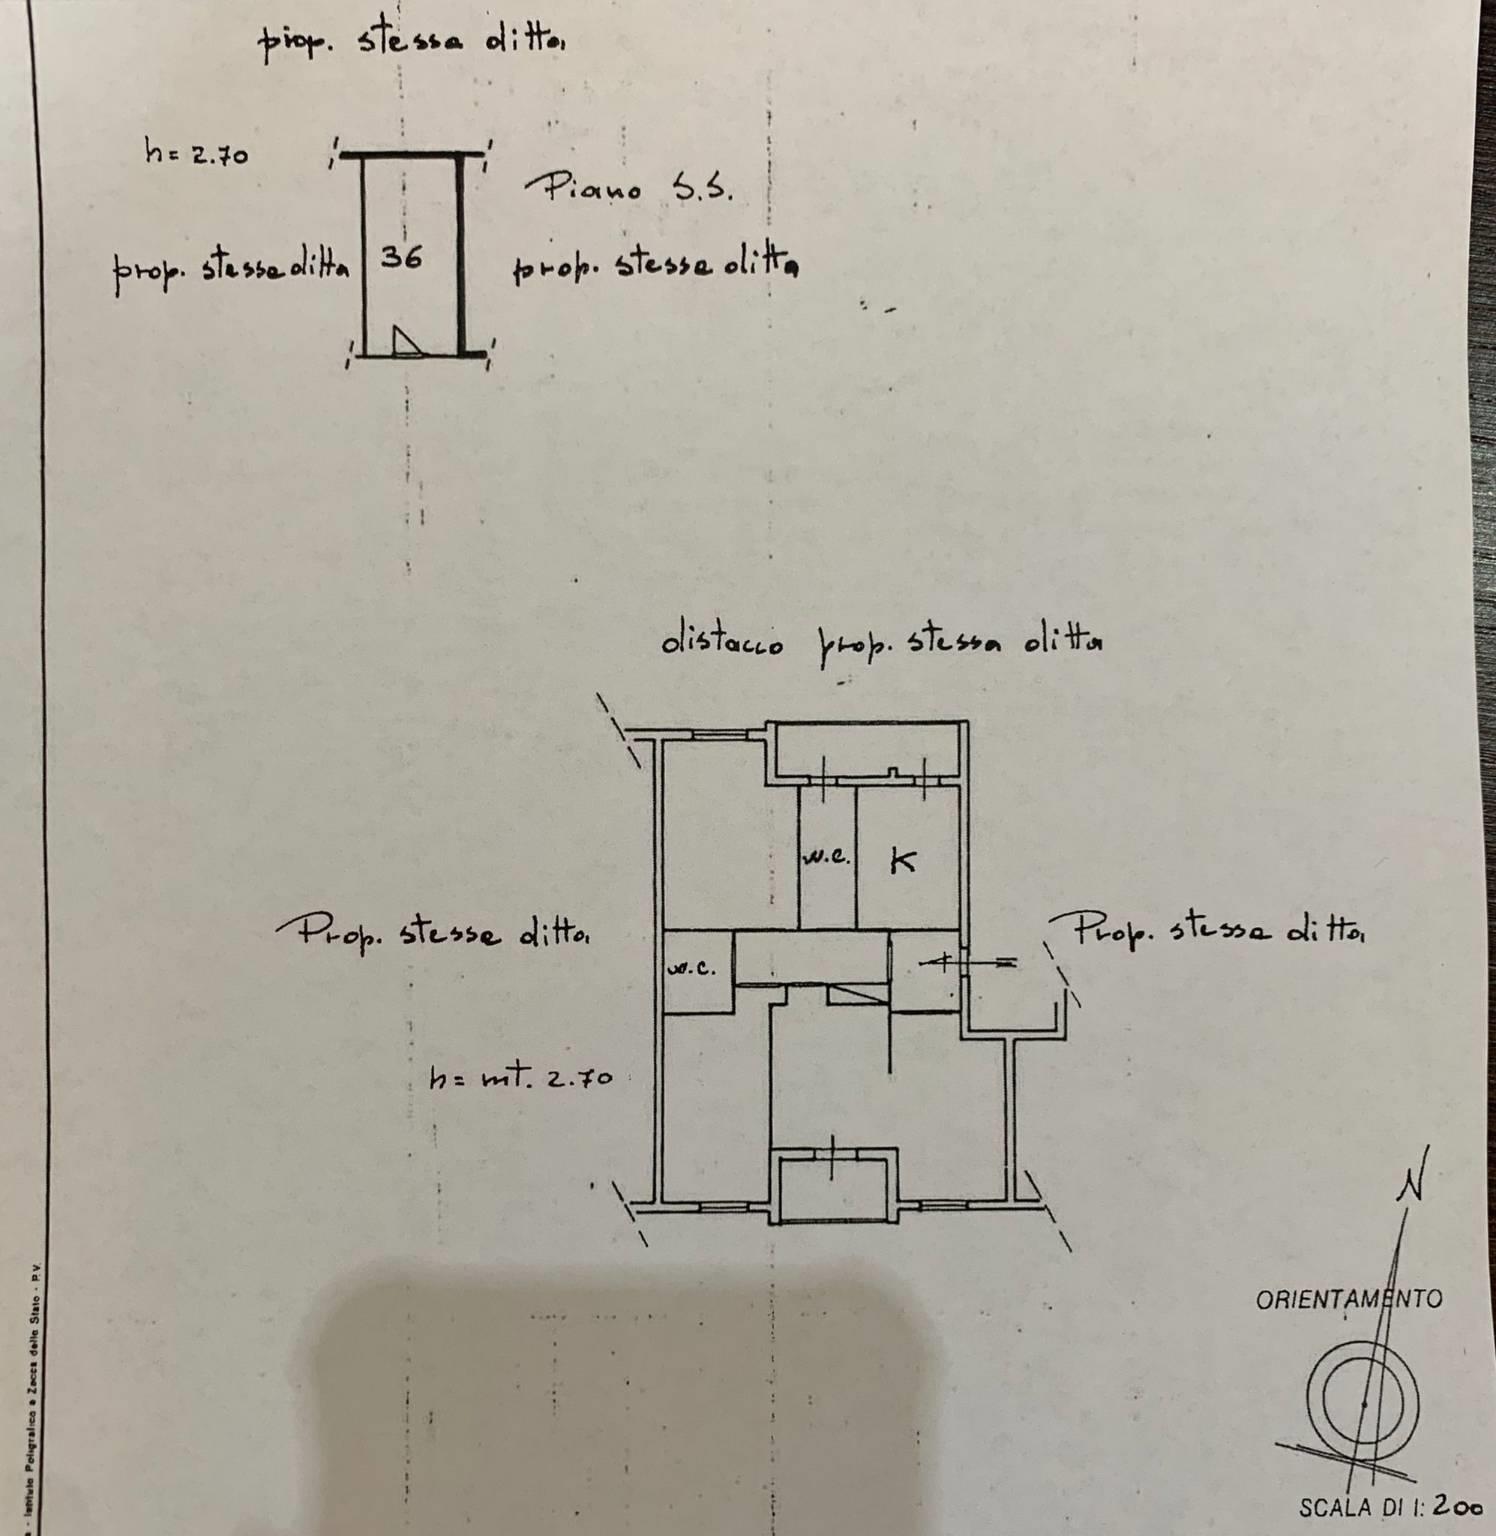 prop. stessa ditta
h= 2.70
Piano S.S.
prop. stessa ditta
36
prop. stessa ditta
distacco prop. stessa ditta
w.c.
K
Prop. stessa ditta
w.c.
Prop. stessa ditta
h= mt. 2.70
N
ORIENTAMENTO
SCALA DI 1: 200
Istituto Poligrafico e Zecca dello Stato - P.V.